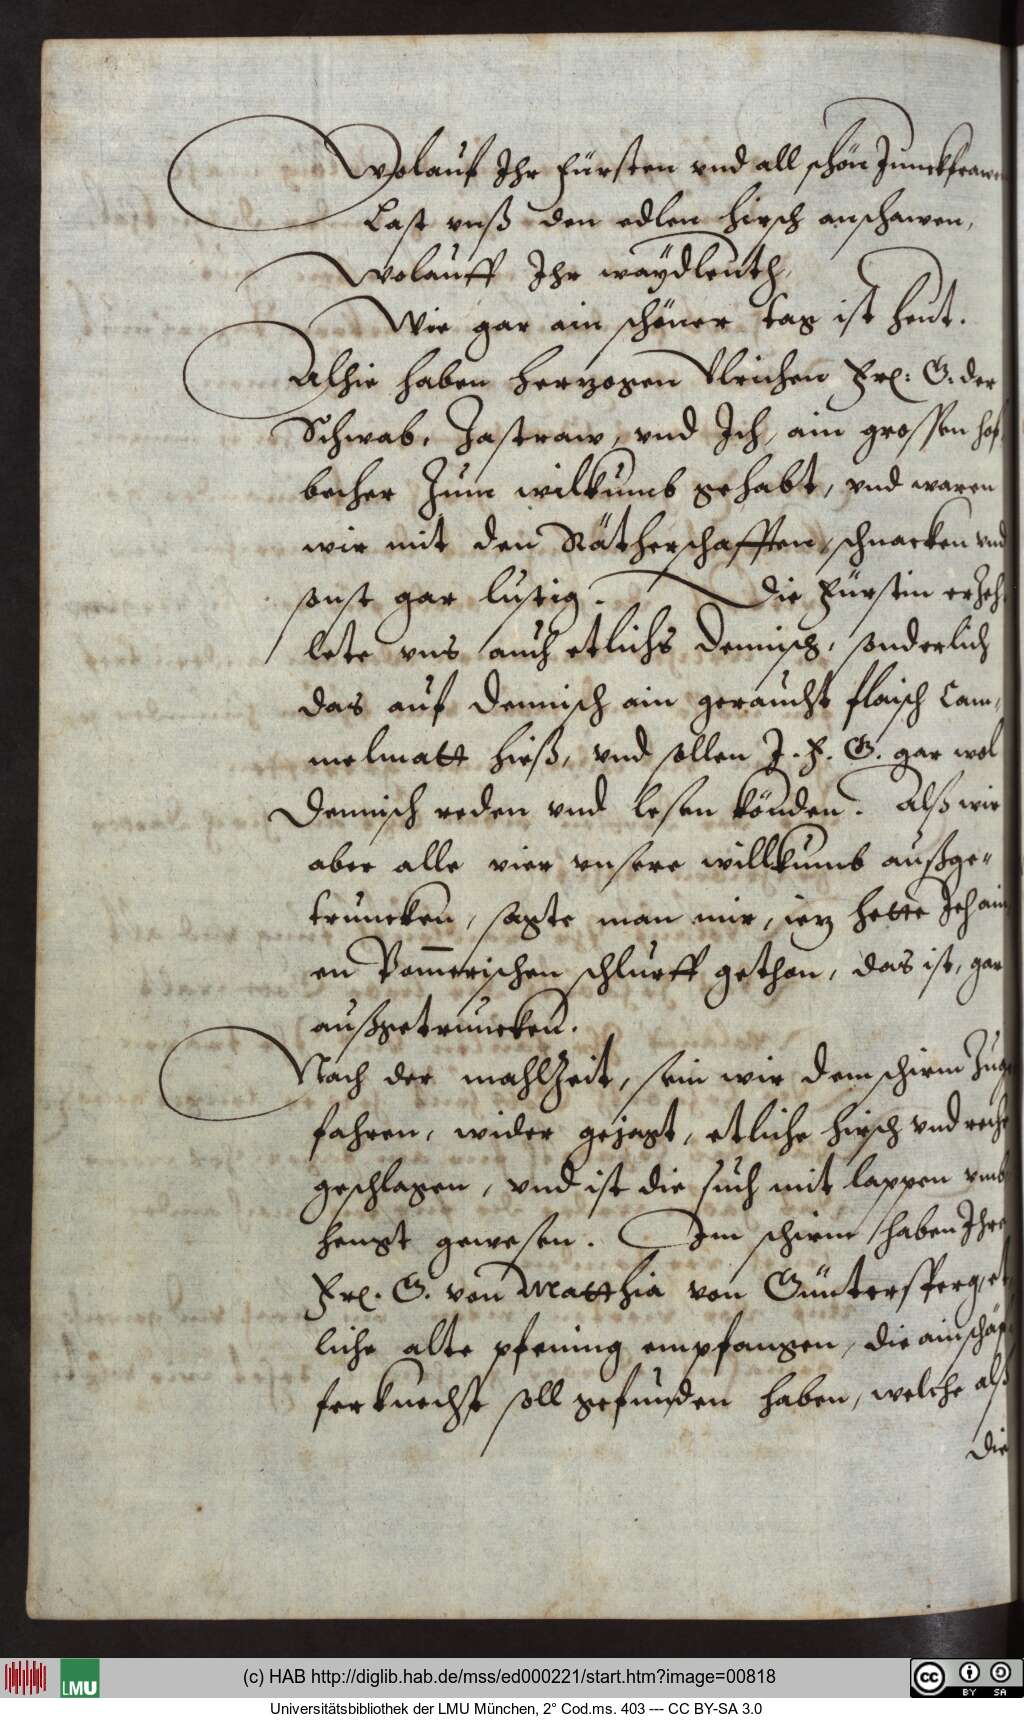 Wolauf Ihr Fürsten vnd all schön Junckfrawen
Last vnß den edlen Hirsch anschawen,
Wolauff Ihr waydleuth,
Wie gar ain schöner tag ist heut.
Alhie haben Herzogen Vlrichen Frl: G: der
Schwab, Zastraw, vnd Ich, ain grossen hof
becher zum wilkumb gehabt, vnd waren
wir mit den Rätherschafften, schnacken vnd
sonst gar lustig. Die Fürstin erzeh
lete vns auch etlichs Dennisch, sonderlich
das auf Dennisch ain geraucht flaisch Lam,
melmatt hieß, vnd sollen J. F. G. gar wol
Dennisch reden vnd lesen könden. Alß wir
aber alle vier vnsere willkumb außge-
truncken, sagte man mir, iez hette Ich ain
en Pom̅erischen schlurff gethon, das ist, gar
außgetruncken.
Nach der mahlzeit, sein wir dem schirm zuge
fahren, wider gejagt, etliche Hirsch vnd reche
geschlagen, vnd ist die such mit lappen vmb
hengt gewesen. Im schirm haben Ihre
Frl. G. von Matthia von Güntersperg, et
liche alte pfening empfangen, die ain schäf
ferknecht soll gefunden haben, welche alß
die
(c) HAB http://diglib.hab.de/mss/ed000221/start.htm?image=00818
LMU
cc BY SA
Universitätsbibliothek der LMU München, 2° Cod.ms. 403 --- CC BY-SA 3.0